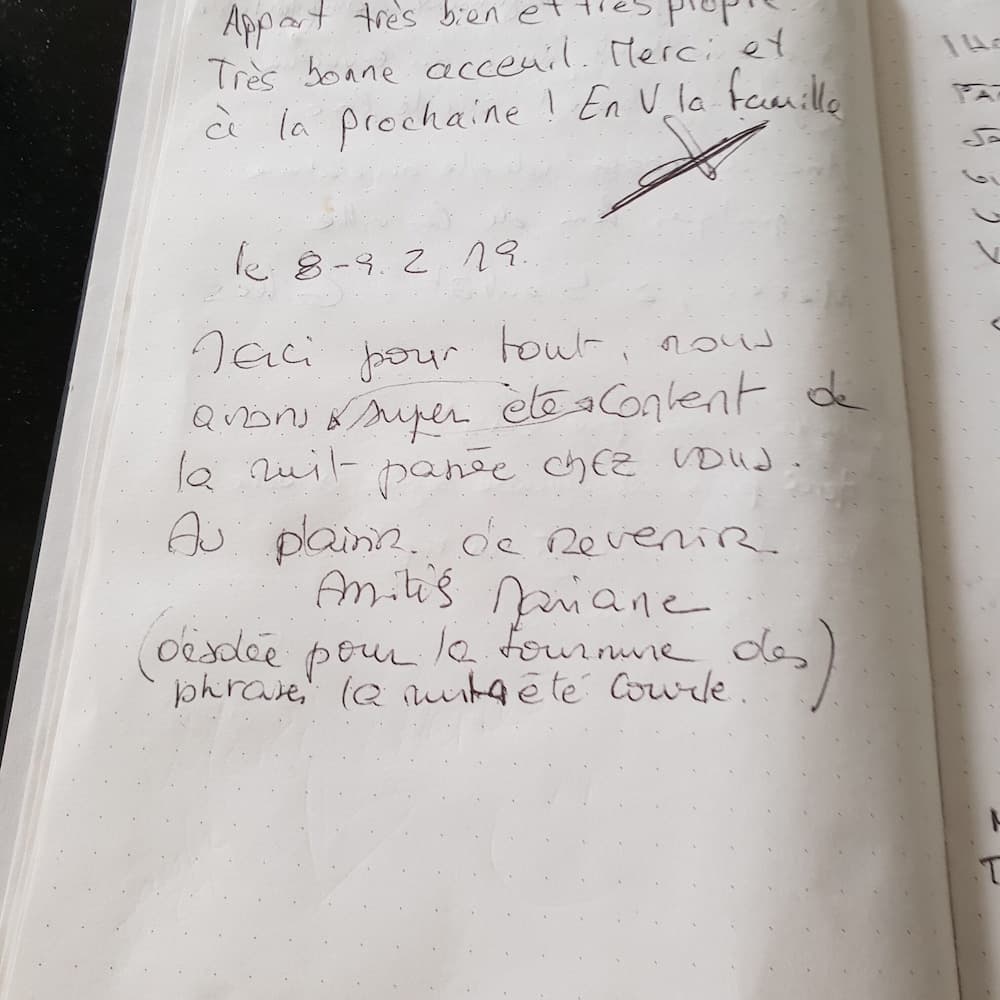 Appart très bien et très propre.
Très bonne acceuil. Merci et
à la prochaine ! En V la famille
le 8-9. 2 19.
Merci pour tout, nous
avons super été content de
la nuit passée chez vous.
Au plaisir de revenir
Amitiés Mariane
(désolée pour la tournure des)
phrase, la nuit a été courte.